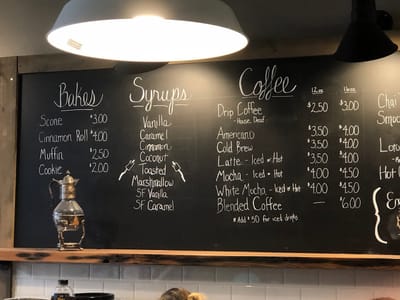 Bakes
Scone $3.00
Cinnamon Roll $4.00
Muffin $2.50
Cookie $2.00
Syrups
Vanilla
Caramel
Cinnamon
Coconut
Toasted
Marshmallow
SF Vanilla
SF Caramel
Coffee
12oz 16oz
Drip Coffee $2.50 $3.00
- House
Americano $3.50 $4.00
Cold Brew $3.50 $4.00
Latte - Iced or Hot $3.50 $4.00
Mocha - Iced or Hot $4.00 $4.50
White Mocha - Iced or Hot $4.00 $4.50
Blended Coffee — $6.00
* Add $.50 for iced drinks
Chai
Smoo
Hot C